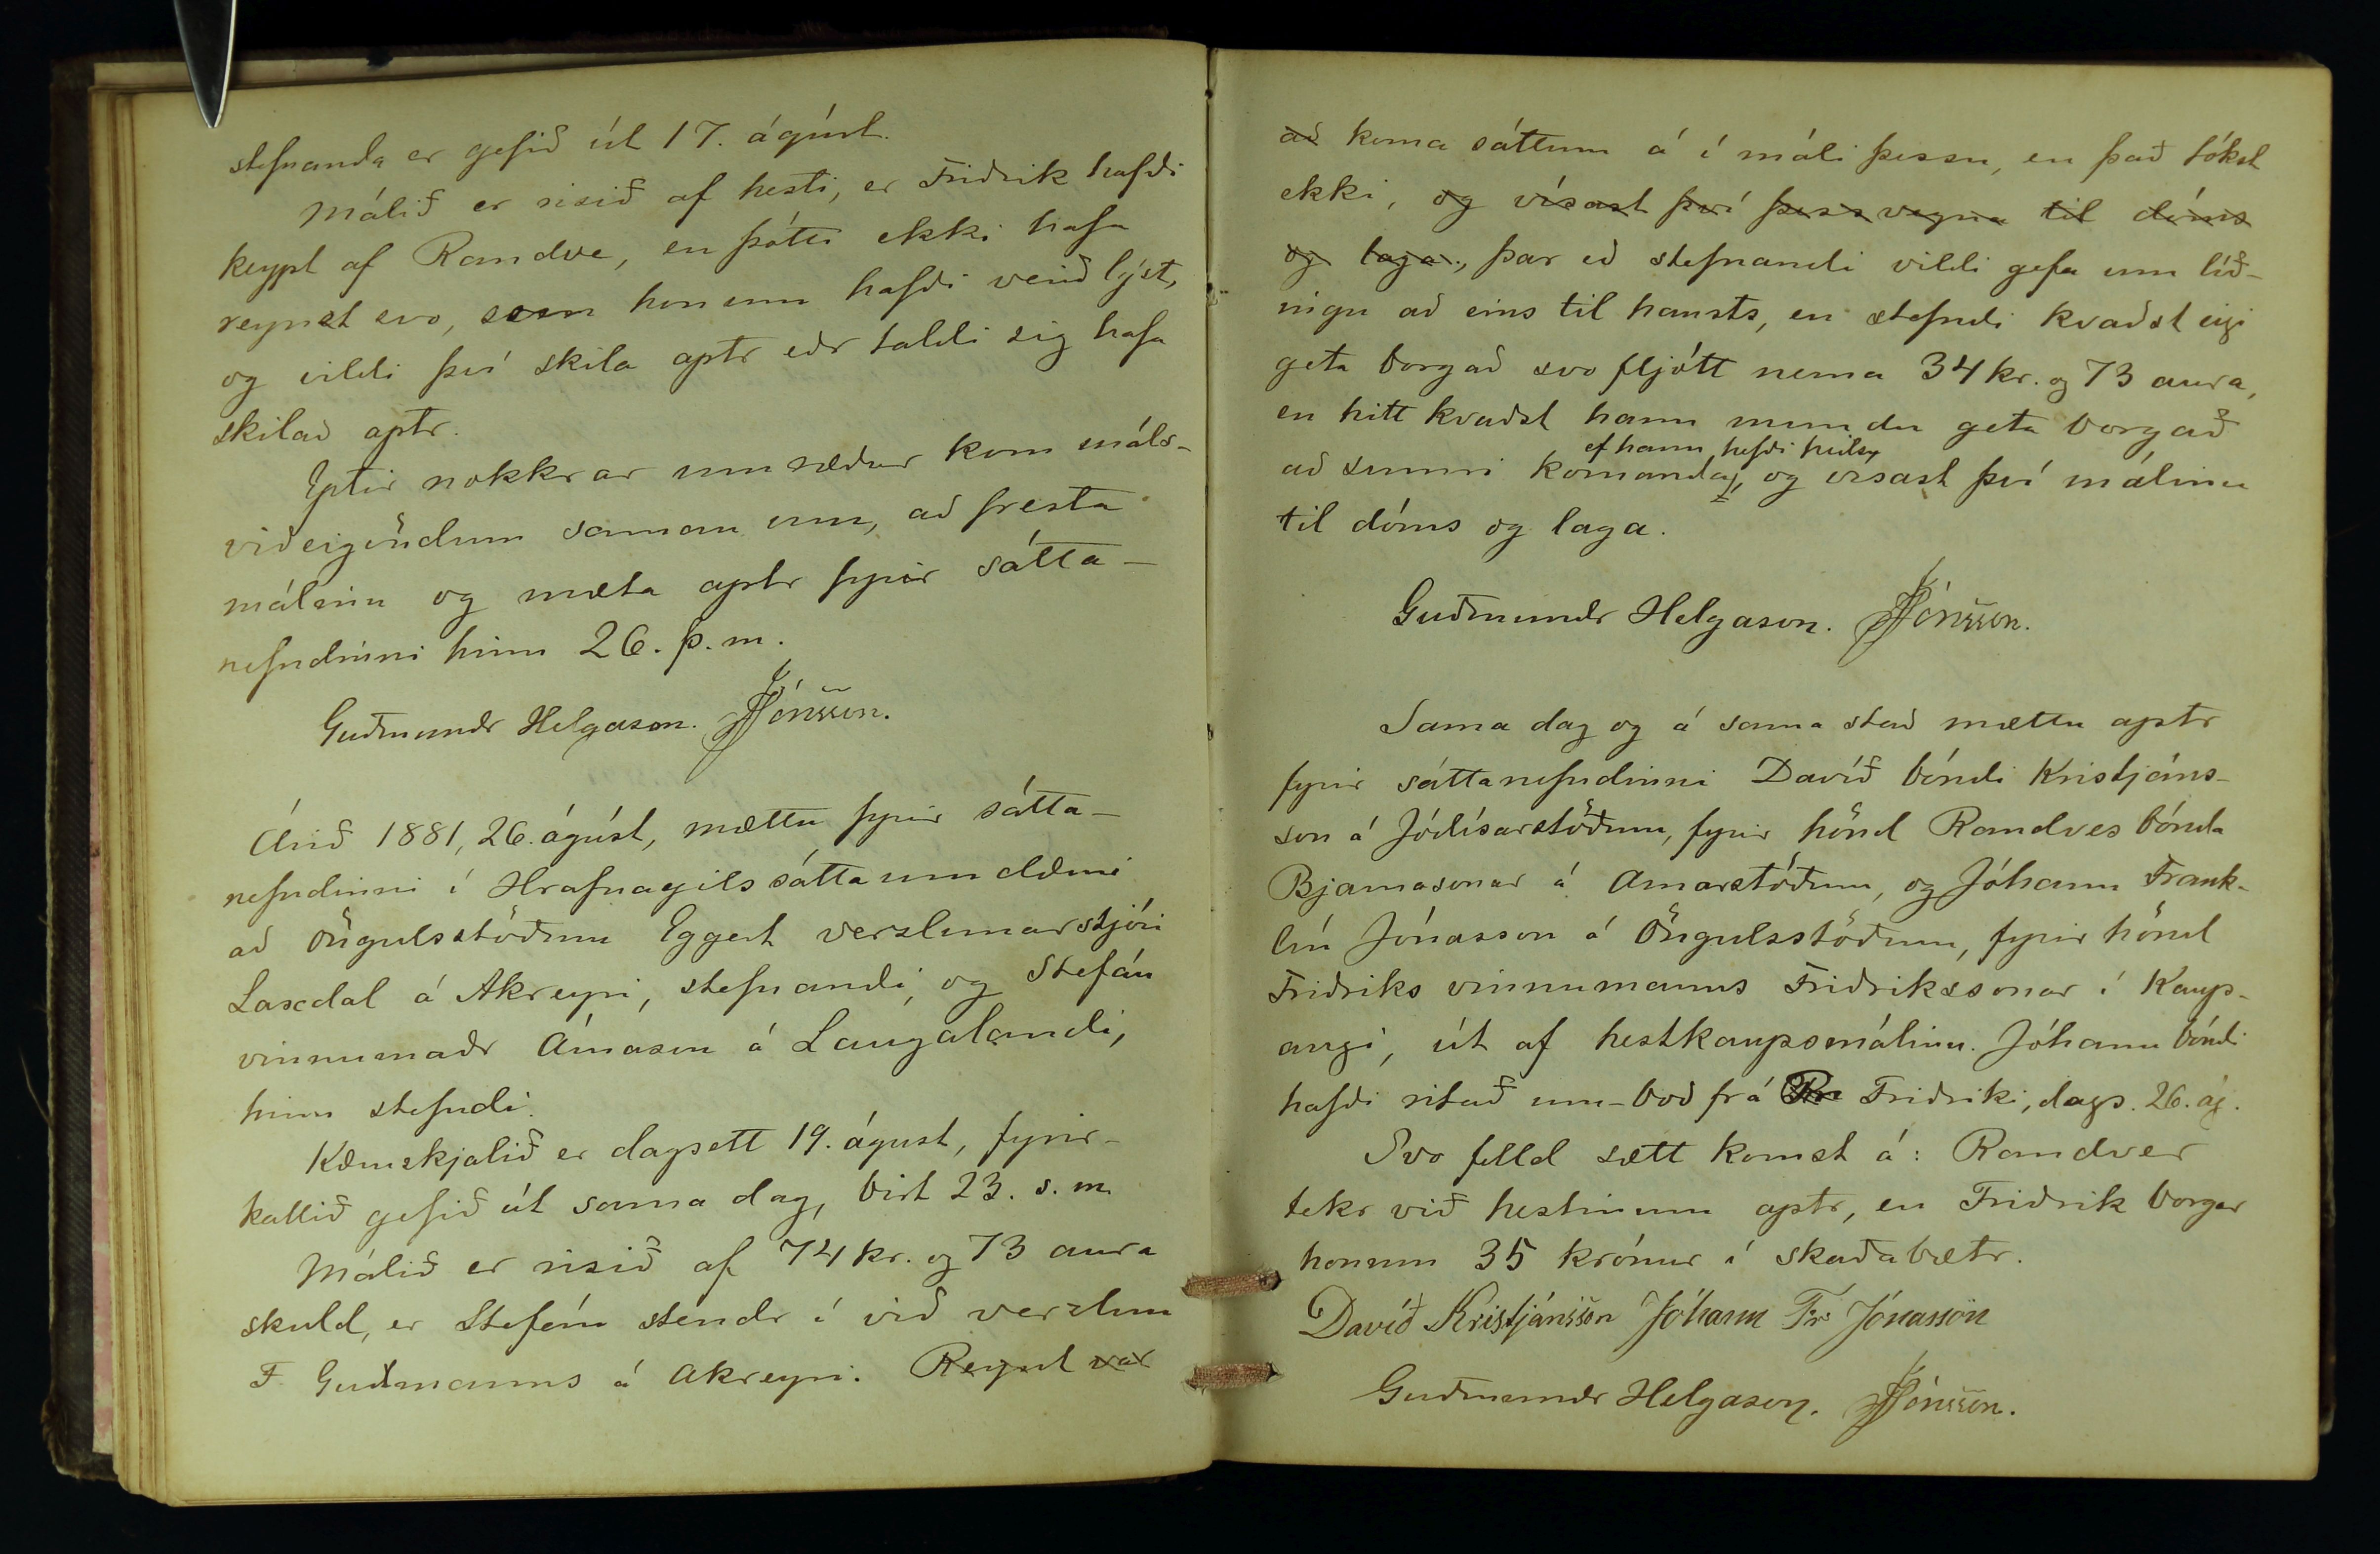 stefnanda er gefið út 17. ágúst.
Málið er risið af hesti, er Friðrik hafði
keypt af Randve, en þótti ekki hafa
reynst svo, sem honum hafði verið lýst,
og vildi því skila aptr eðr taldi sig hafa
skilað aptr.
Eptir nokkrar umræður kom máls-
viðeigöndum saman um, að fresta
málinu og mæta aptr fyrir sátta-
nefndinni hinn 26. þ. m.
Guðmundr Helgason. JJónsson.
Árið 1881, 26. ágúst, mættu fyrir sátta-
nefndinni í Hrafnagils sáttaumdæmi
að Öngulsstöðum Eggert verzlunarstjóri
Laxdal á Akreyri, stefnandi, og Stefán
vinnumaðr Árnason á Laugalandi,
hinn stefndi.
Kæruskjalið er dagsett 19. ágúst, fyrir-
kallið gefið út sama dag, birt 23. s. m.
Málið er risið af 74 kr. og 73 aura
skuld, er Stefán stendr í við verzlun
F. Guðmanns á Akreyri. Reynt var
að koma sáttum á í máli þessu, en það tókst
ekki, og vísast því þess vegna til dóms
og laga., þar eð stefnandi vildi gefa um líð-
ingu að eins til hausts, en stefndi kvaðst eigi
geta borgað svo fljótt nema 34 kr. og 73 aura,
en hitt kvaðst hann mundu geta borgað
ef hann hefði heilsu
að sumri komanda, og vísast því málinu
til dóms og laga.
Guðmundr Helgason. JJónsson.
Sama dag og á sama stað mættu aptr
fyrir sáttanefndinni Davíð bóndi Kristjáns-
son á Jódísarstöðum, fyrir hönd Randves bónda
Bjarnasonar á Arnarstöðum, og Jóhann Frank-
lín Jónasson á Öngulsstöðum, fyrir hönd
Friðriks vinnumanns Friðrikssonar í Kaup-
angi, út af hestkaupsmálinu. Jóhann bóndi
hafði ritað um-boð frá Friðriki, dags. 26. ág.
Svo felld sætt komst á: Randver
tekr við hestinum aptr, en Friðrik borgar
honum 35 krónur í skaðabætr.
Davíð Kristjánsson Jóhann Fr. Jónasson
Guðmundr Helgason. JJónsson.